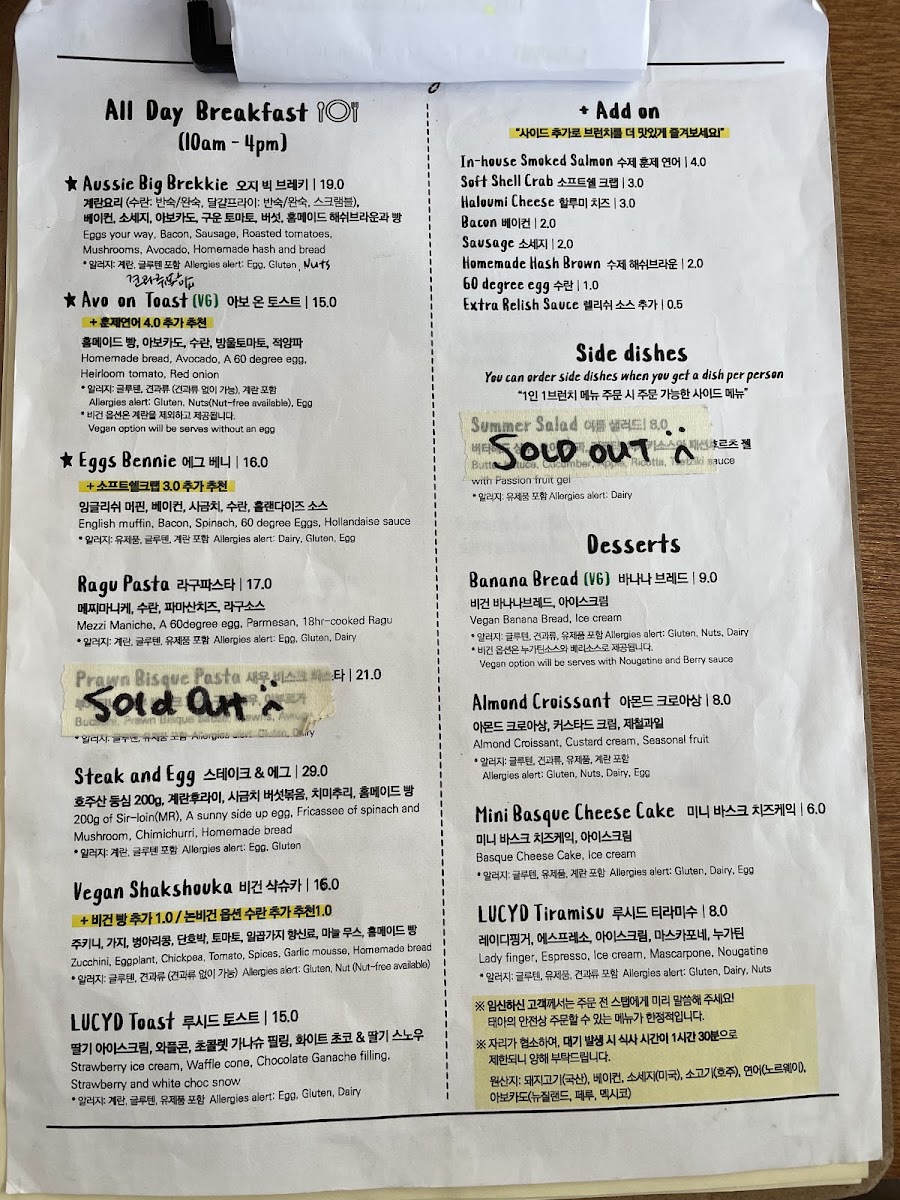 All Day Breakfast
(10am - 4pm)
★ Aussie Big Brekkie 오지 빅 브레키 | 19.0
계란요리 (수란: 반숙/완숙, 달걀프라이: 반숙/완숙, 스크램블),
베이컨, 소세지, 아보카도, 구운 토마토, 버섯, 홈메이드 해쉬브라운과 빵
Eggs your way, Bacon, Sausage, Roasted tomatoes,
Mushrooms, Avocado, Homemade hash and bread
* 알러지: 계란, 글루텐 포함 Allergies alert: Egg, Gluten, Nuts
★ Avo on Toast (VG) 아보 온 토스트 | 15.0
+ 훈제연어 4.0 추가 추천
홈메이드 빵, 아보카도, 수란, 방울토마토, 적양파
Homemade bread, Avocado, A 60 degree egg,
Heirloom tomato, Red onion
* 알러지: 글루텐, 견과류 (견과류 없이 가능), 계란 포함
Allergies alert: Gluten, Nuts(Nut-free available), Egg
* 비건 옵션은 계란을 제외하고 제공됩니다.
Vegan option will be serves without an egg
★ Eggs Bennie 에그 베니 | 16.0
+ 소프트쉘크랩 3.0 추가 추천
잉글리쉬 머핀, 베이컨, 시금치, 수란, 홀랜다이즈 소스
English muffin, Bacon, Spinach, 60 degree Eggs, Hollandaise sauce
* 알러지: 유제품, 글루텐, 계란 포함 Allergies alert: Dairy, Gluten, Egg
Ragu Pasta 라구파스타 | 17.0
메찌마니케, 수란, 파마산치즈, 라구소스
Mezzi Maniche, A 60degree egg, Parmesan, 18hr-cooked Ragu
* 알러지: 계란, 글루텐, 유제품 포함 Allergies alert: Egg, Gluten, Dairy
Prawn Bisque Pasta 새우 비스크 파스타 | 21.0
Sold Out
* 알러지: 글루텐, 유제품 포함 Allergies alert: Gluten, Dairy
Steak and Egg 스테이크 & 에그 | 29.0
호주산 등심 200g, 계란후라이, 시금치 버섯볶음, 치미추리, 홈메이드 빵
200g of Sir-loin(MR), A sunny side up egg, Fricassee of spinach and
Mushroom, Chimichurri, Homemade bread
* 알러지: 계란, 글루텐 포함 Allergies alert: Egg, Gluten
Vegan Shakshouka 비건 샥슈카 | 16.0
+ 비건 빵 추가 1.0 / 논비건 옵션 수란 추가 추천1.0
주키니, 가지, 병아리콩, 단호박, 토마토, 일곱가지 향신료, 마늘 무스, 홈메이드 빵
Zucchini, Eggplant, Chickpea, Tomato, Spices, Garlic mousse, Homemade bread
* 알러지: 글루텐, 견과류 (견과류 없이 가능) Allergies alert: Gluten, Nut (Nut-free available)
LUCYD Toast 루시드 토스트 | 15.0
딸기 아이스크림, 와플콘, 초콜렛 가나슈 필링, 화이트 초코 & 딸기 스노우
Strawberry ice cream, Waffle cone, Chocolate Ganache filling,
Strawberry and white choc snow
* 알러지: 계란, 글루텐, 유제품 포함 Allergies alert: Egg, Gluten, Dairy
+ Add on
"사이드 추가로 브런치를 더 맛있게 즐겨보세요!"
In-house Smoked Salmon 수제 훈제 연어 | 4.0
Soft Shell Crab 소프트쉘 크랩 | 3.0
Haloumi Cheese 할루미 치즈 | 3.0
Bacon 베이컨 | 2.0
Sausage 소세지 | 2.0
Homemade Hash Brown 수제 해쉬브라운 | 2.0
60 degree egg 수란 | 1.0
Extra Relish Sauce 렐리쉬 소스 추가 | 0.5
Side dishes
You can order side dishes when you get a dish per person
"1인 1브런치 메뉴 주문 시 주문 가능한 사이드 메뉴"
Summer Salad 여름 샐러드 | 8.0
SOLD OUT
후르츠 젤
sauce
with Passion fruit gel
* 알러지: 유제품 포함 Allergies alert: Dairy
Desserts
Banana Bread (VG) 바나나 브레드 | 9.0
비건 바나나브레드, 아이스크림
Vegan Banana Bread, Ice cream
* 알러지: 글루텐, 견과류, 유제품 포함 Allergies alert: Gluten, Nuts, Dairy
* 비건 옵션은 누가틴소스와 베리소스로 제공됩니다.
Vegan option will be serves with Nougatine and Berry sauce
Almond Croissant 아몬드 크로아상 | 8.0
아몬드 크로아상, 커스타드 크림, 제철과일
Almond Croissant, Custard cream, Seasonal fruit
* 알러지: 글루텐, 견과류, 유제품, 계란 포함
Allergies alert: Gluten, Nuts, Dairy, Egg
Mini Basque Cheese Cake 미니 바스크 치즈케익 | 6.0
미니 바스크 치즈케익, 아이스크림
Basque Cheese Cake, Ice cream
* 알러지: 글루텐, 유제품, 계란 포함 Allergies alert: Gluten, Dairy, Egg
LUCYD Tiramisu 루시드 티라미수 | 8.0
레이디핑거, 에스프레소, 아이스크림, 마스카포네, 누가틴
Lady finger, Espresso, Ice cream, Mascarpone, Nougatine
* 알러지: 글루텐, 유제품, 견과류 포함 Allergies alert: Gluten, Dairy, Nuts
※ 임신하신 고객께서는 주문 전 스탭에게 미리 말씀해 주세요!
태아의 안전상 주문할 수 있는 메뉴가 한정적입니다.
※ 자리가 협소하여, 대기 발생 시 식사 시간이 1시간 30분으로
제한되니 양해 부탁드립니다.
원산지: 돼지고기(국산), 베이컨, 소세지(미국), 소고기(호주), 연어(노르웨이),
아보카도(뉴질랜드, 페루, 멕시코)